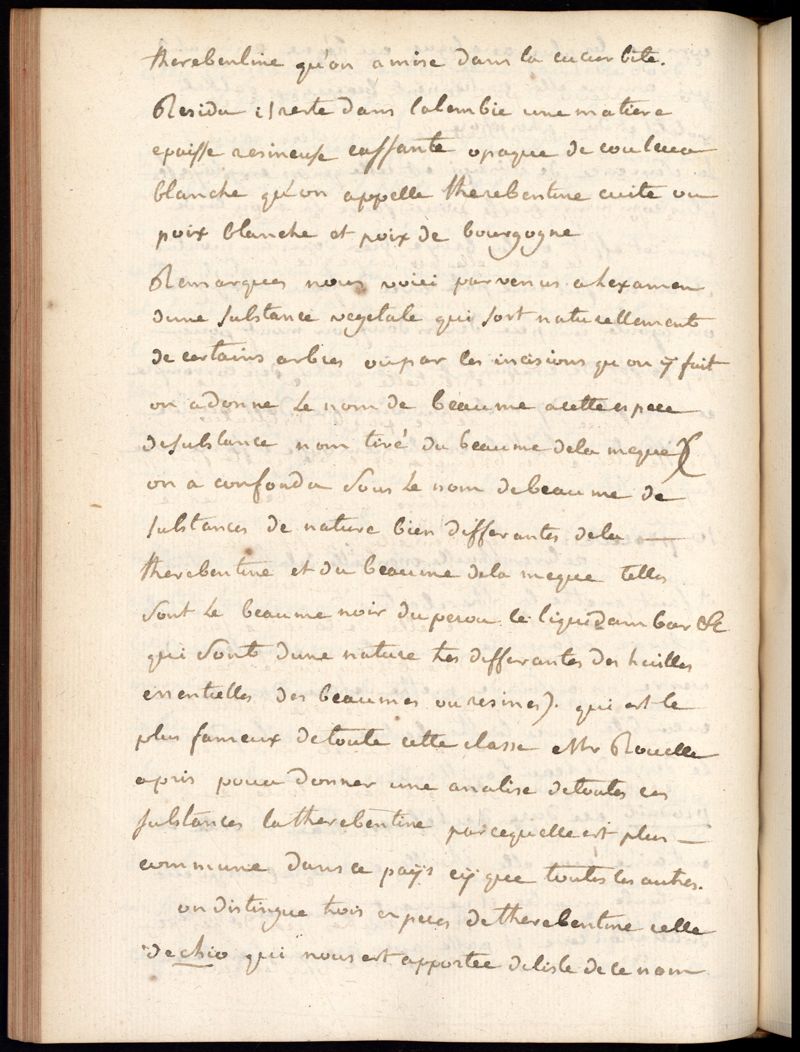 therebentine qu'on a mise dans la cucurbite.
Residu il reste dans lalembic une matiere
epaisse resineuse cassante opaque de couleur
blanche qu'on appelle therebentine cuite ou
poix blanche et poix de bourgogne
Remarques nous voici parvenus a lexamen
dune substance vegetale qui sort naturellement
de certains arbres ou par les incisions qu'on y fait
on a donne le nom de beaume a cette espece
de substance nom tiré du beaume de la meque (
on a confondu sous le nom de beaume de
substances de nature bien differantes de la —
therebentine et du beaume de la meque telles
sont le beaume noir du perou le liquidambar &c
qui sont dune nature tres differantes des huilles
essentielles des beaumes ou resines). qui est le
plus fameux de toute cette classe Mr Rouelle
a pris pour donner une analise de toutes ces
substances la therebentine parcequelle est plus —
commune dans ce païs cy que toutes les autres.
on distingue trois especes de therebentine celle
de chio qui nous est apportée de lisle de ce nom